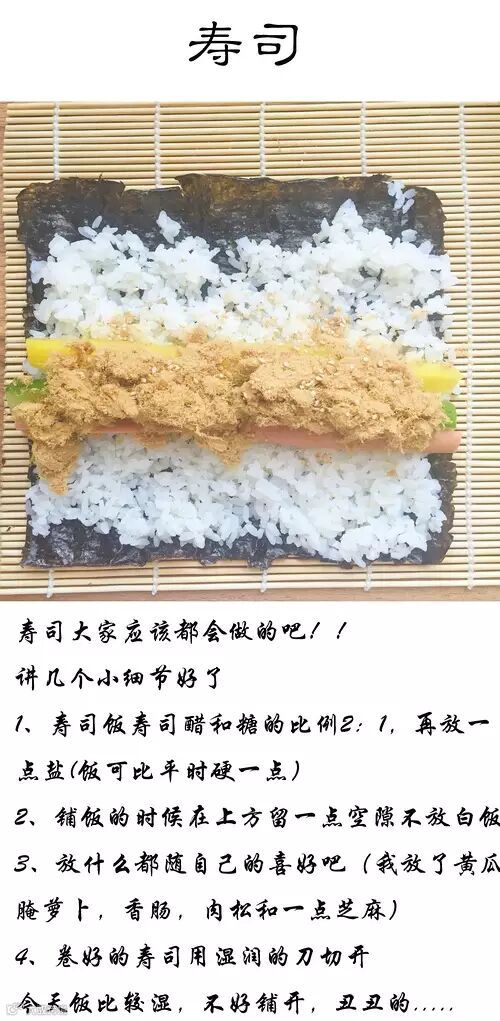 寿司
寿司大家应该都会做的吧！！
讲几个小细节好了
1、寿司饭寿司醋和糖的比例2：1，再放一
点盐(饭可比平时硬一点)
2、铺饭的时候在上方留一点空隙不放白饭
3、放什么都随自己的喜好吧（我放了黄瓜
腌萝卜，香肠，肉松和一点芝麻)
4、卷好的寿司用湿润的刀切开
今天饭比较湿，不好铺开，丑丑的.....